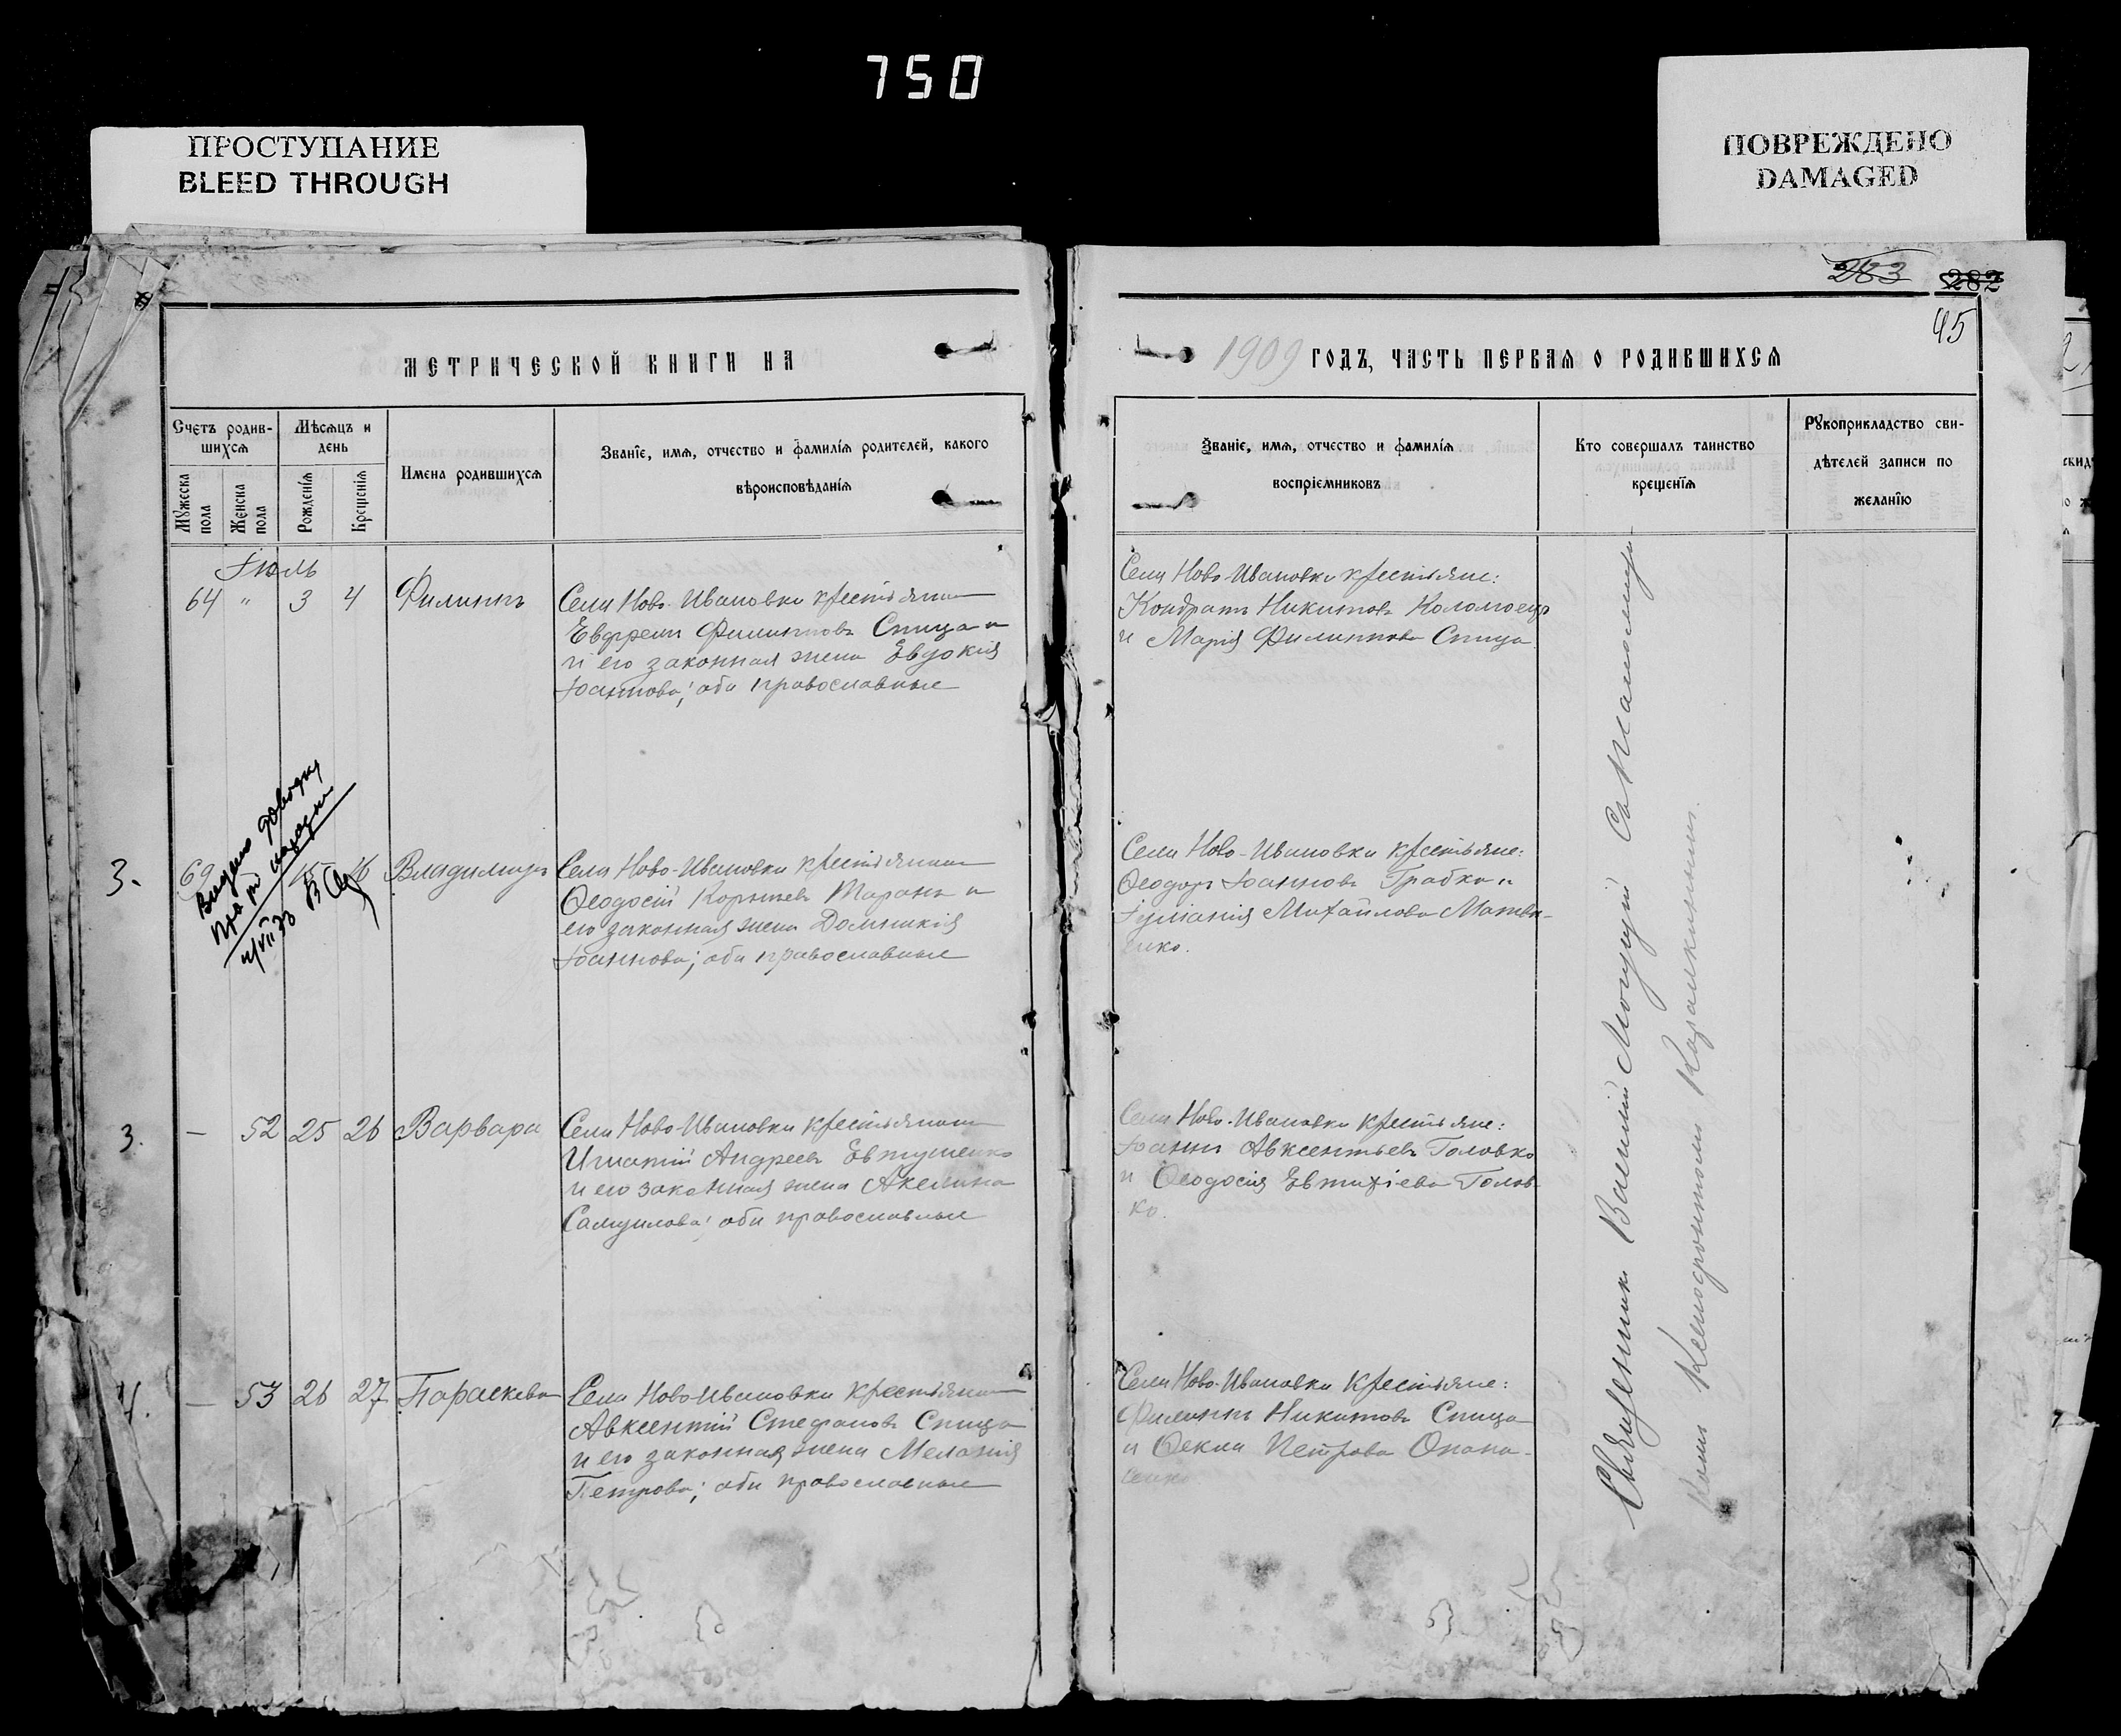 750
ПРОСТУПАНИЕ
BLEED THROUGH
ПОВРЕЖДЕНО
DAMAGED
283 282
45
МЕТРИЧЕСКОЙ КНИГИ НА
1909 ГОДЪ, ЧАСТЬ ПЕРВАЯ О РОДИВШИХСЯ
Счетъ родив-
шихся
Мѣсяцъ и
день
Мужеска
пола
Женска
пола
Рожденїя
Крещенїя
Имена родившихся
Званїе, имя, отчество и фамилїя родителей, какого
вѣроисповѣданїя
Званїе, имя, отчество и фамилїя
воспрїемниковъ
Кто совершалъ таинство
крещенїя
Рукоприкладство сви-
дѣтелей записи по
желанїю
Іюль
64 " 3 4 Филиппъ
Села Ново-Ивановки крестьянинъ
Филипповъ Спица и
и его законная жена Евдокія
Іоаннова; оба православные
Села Ново-Ивановки крестьяне:
Кондратъ Никитовъ Коломоецъ
и Марія Филиппова Спица
Видано довідку
3. 69 15 16 Владимиръ
Села Ново-Ивановки крестьянинъ
Ѳеодосій Таранъ и
его законная жена Домникія
Іоаннова; оба православные
Села Ново-Ивановки крестьяне:
Ѳеодоръ Іоанновъ и
Іуліанія Михайлова Матвѣ-
енко.
3. — 52 25 26 Варвара
Села Ново-Ивановки крестьянинъ
Игнатій Андреевъ Евтушенко
и его законная жена Акелина
Самуилова; оба православные
Села Ново-Ивановки крестьяне:
Іоаннъ Авксентьевъ Головко
и Ѳеодосія Евтихіева Голов-
ко.
4. — 53 26 27 Параскева
Села Ново-Ивановки крестьянинъ
Авксентій Стефановъ Спица
и его законная жена Меланія
Петрова; оба православные
Села Ново-Ивановки крестьяне:
Филиппъ Никитовъ Спица
и Ѳекла Петрова Опана-
сенко
Священникъ Василій Могучій Съ Псаломщ.